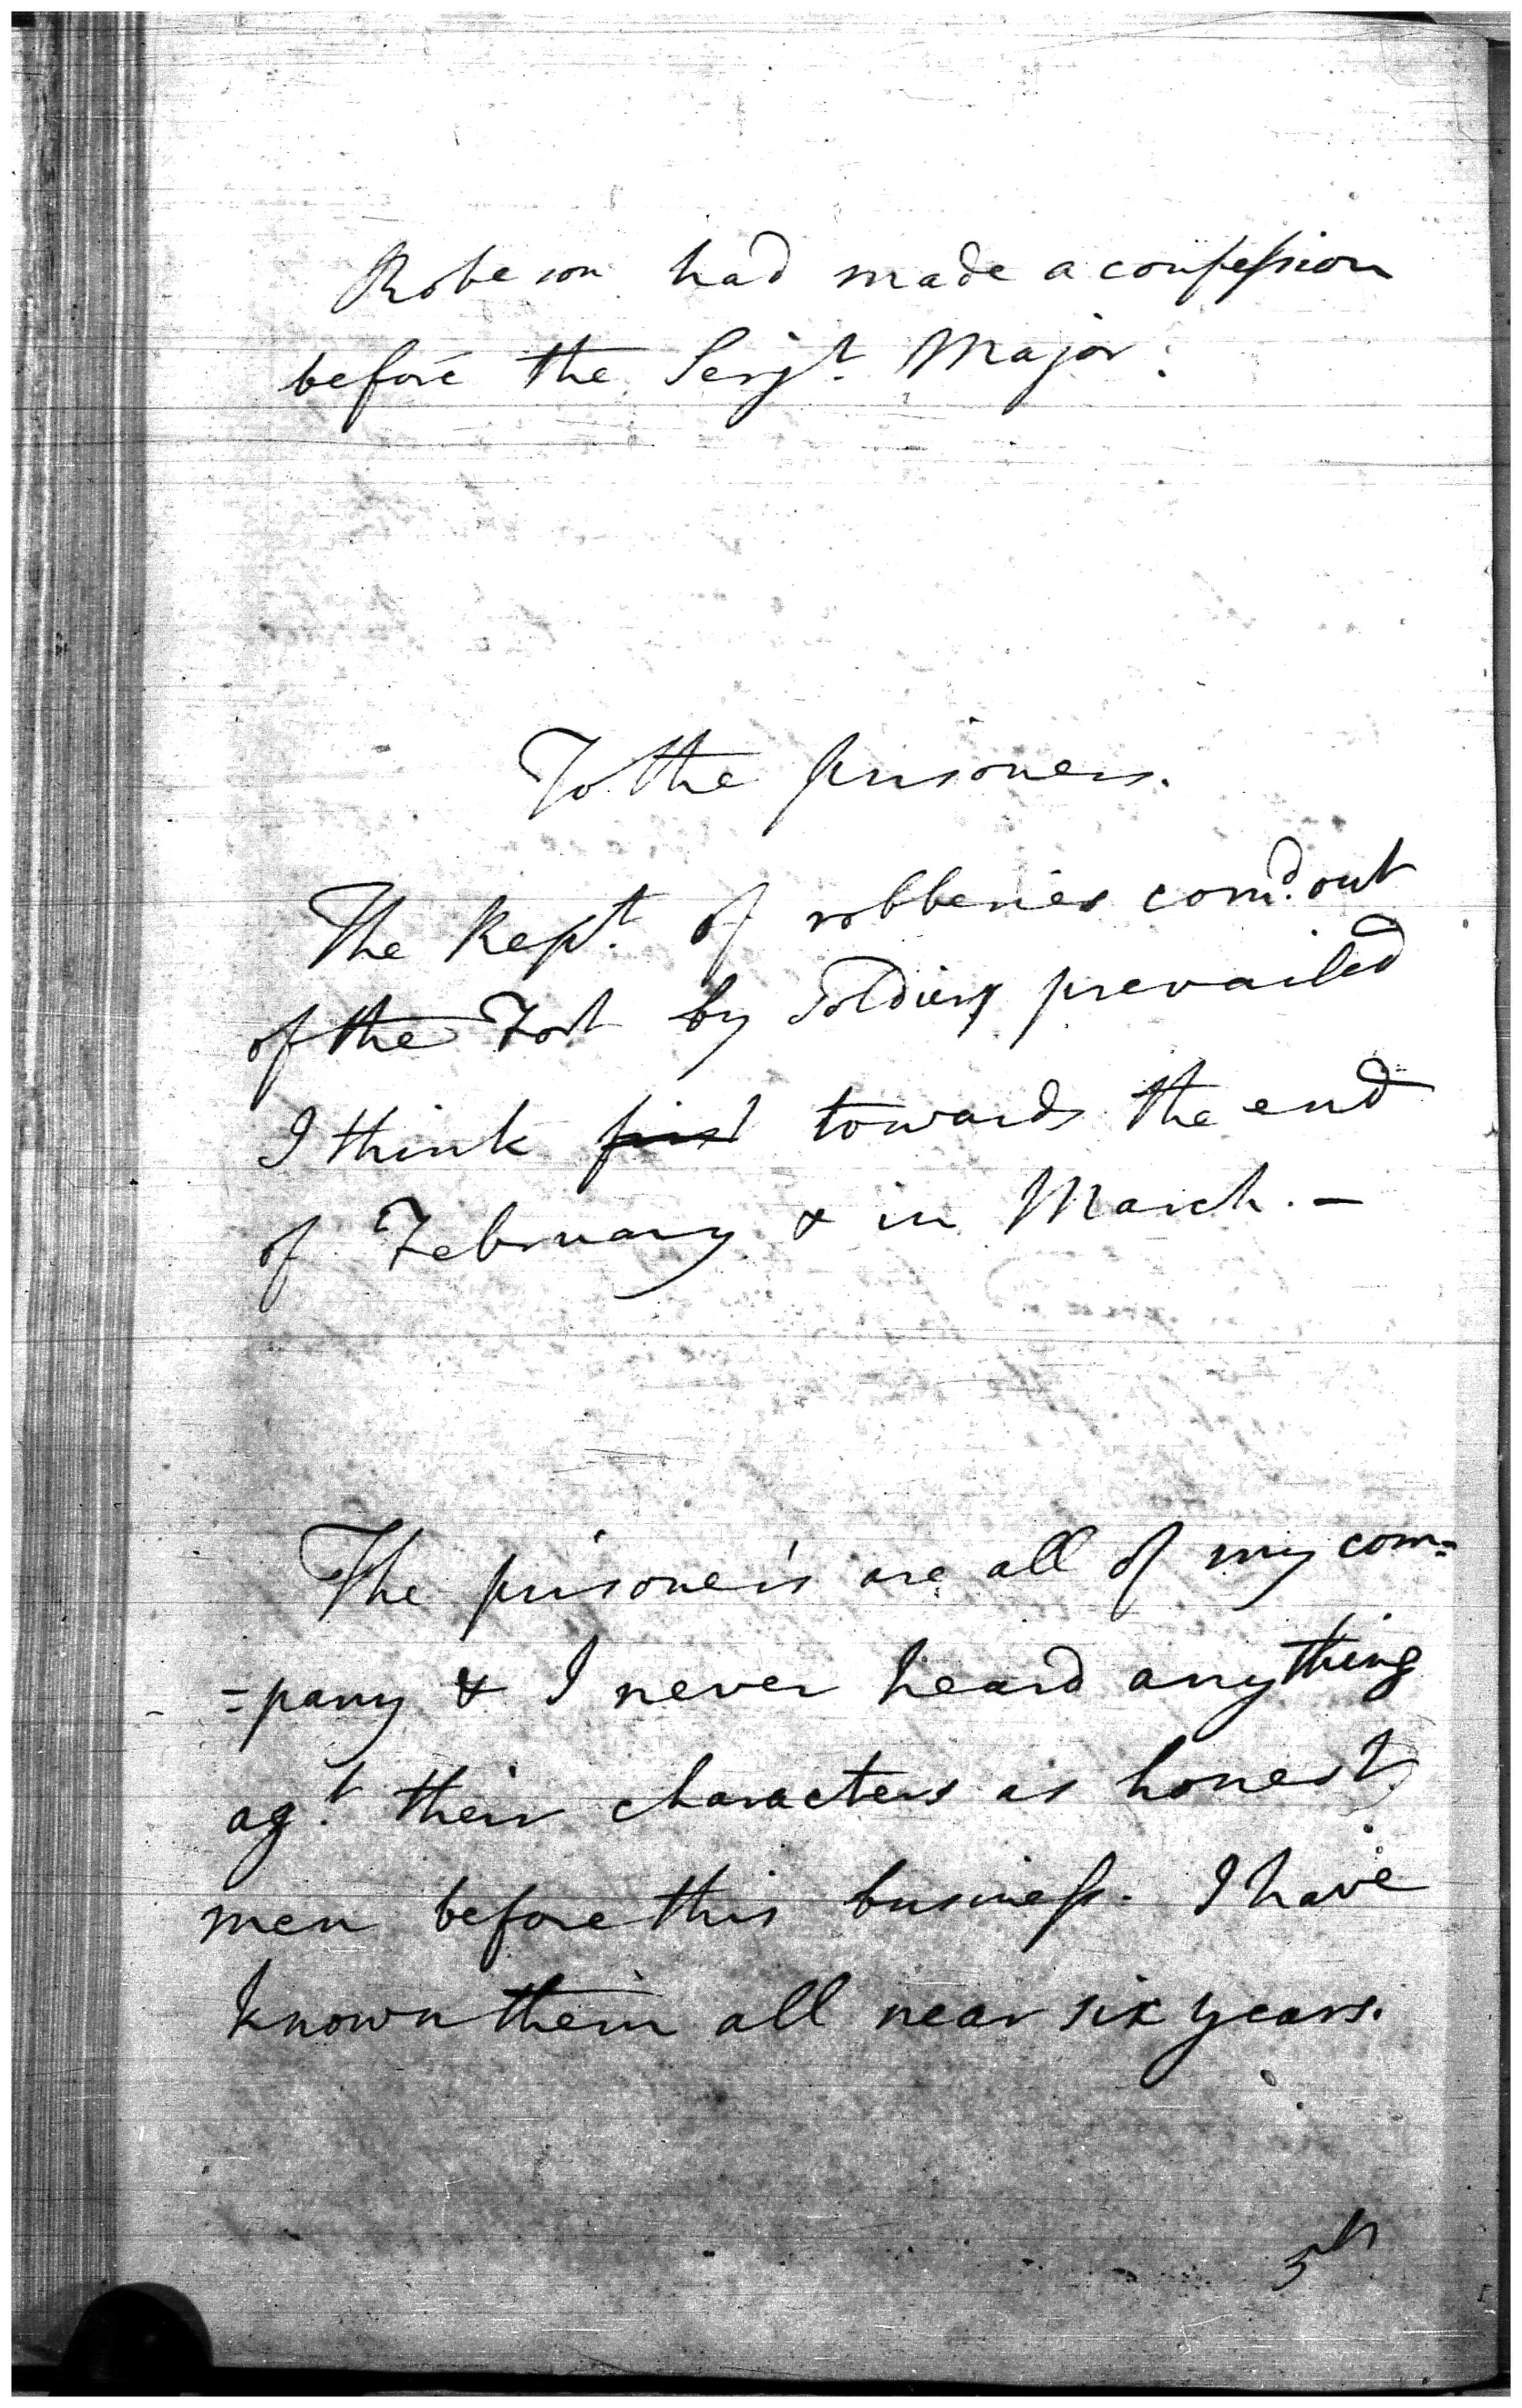 Robeson had made a confession
before the Serjt. Major.
To the prisoners.
The Rept. of robberies comd. out
of the Fort by Soldiers prevailed
I think first towards the end
of February & in March. -
The prisoners are all of my com=
=pany & I never heard anything
agt. their characters as honest
men before this business. I have
known them all near six years.
5th